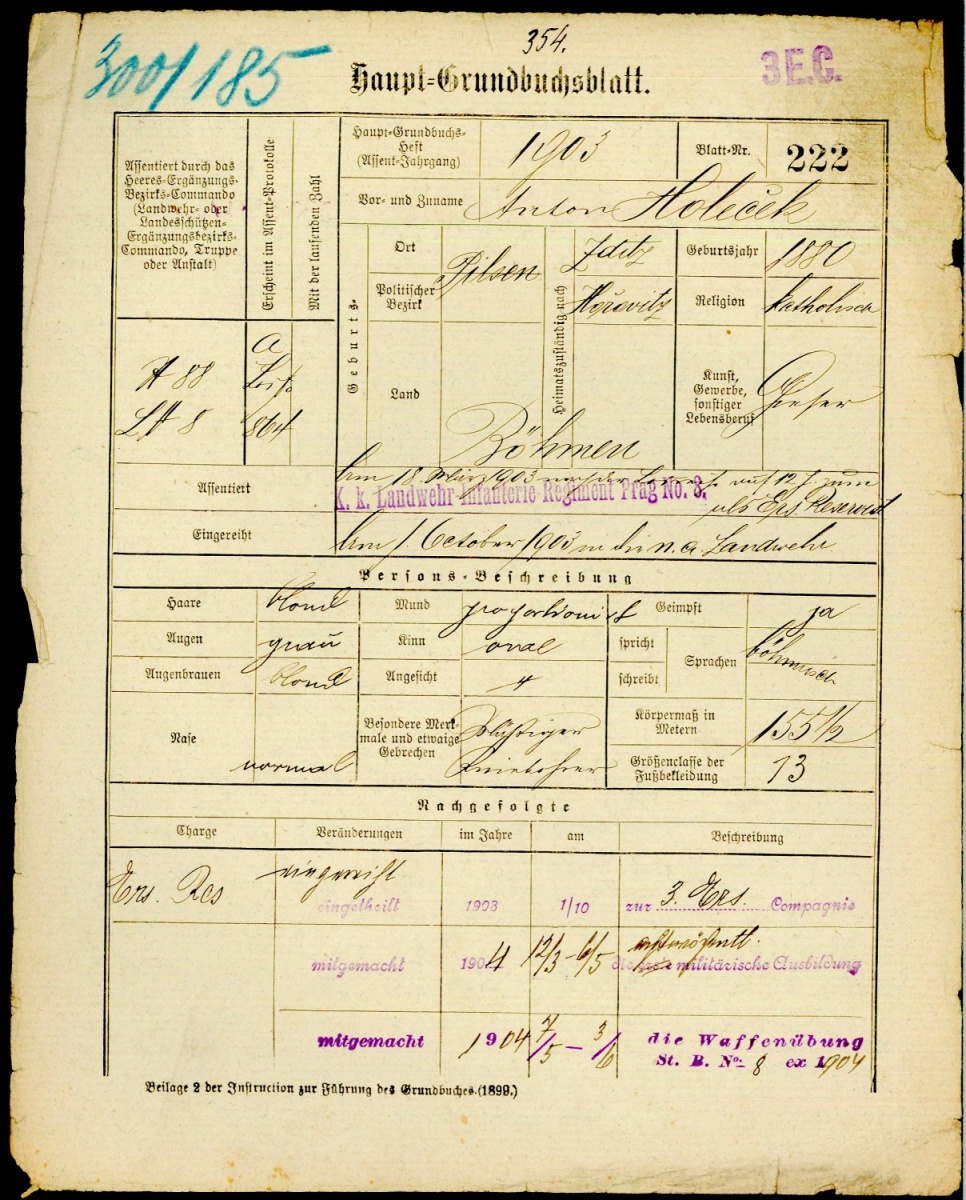 354.
300/185
3 E.C.
Haupt-Grundbuchsblatt.
Assentiert durch das
Heeres-Ergänzungs-
Bezirks-Commando
(Landwehr- oder
Landesschützen-
Ergänzungsbezirks-
Commando, Truppe
oder Anstalt)
Erscheint im Assent-Protokolle
Mit der laufenden Zahl
H 88
LH 8
a
864
Haupt-Grundbuchs-
Heft
(Assent-Jahrgang)
1903
Blatt-Nr.
222
Vor- und Zuname
Anton Holeček
Geburts-
Ort
Politischer
Bezirk
Pilsen
Land
Böhmen
Heimatszuständig nach
Zditz
Hořovitz
Geburtsjahr
1880
Religion
katholisch
Kunst,
Gewerbe,
sonstiger
Lebensberuf
Assentiert
am 18. März 1903 auf 12 J. zum
K. k. Landwehr-Infanterie-Regiment Prag No. 8.
als Ers Reservist
Eingereiht
am 1. October 1903 in die n. a. Landwehr
Persons-Beschreibung
Haare
blond
Mund
proportioniert
Geimpft
ja
Augen
grau
Kinn
oval
spricht
schreibt
Sprachen
böhmisch
Augenbrauen
blond
Angesicht
"
Nase
normal
Besondere Merk-
male und etwaige
Gebrechen
Körpermaß in
Metern
155½
Größenclasse der
Fußbekleidung
13
Nachgefolgte
Charge
Veränderungen
im Jahre
am
Beschreibung
Ers. Res
eingereiht
eingetheilt
1903
1/10
zur 3. Ers. Compagnie
mitgemacht
1904
12/3 - 6/5
die erste militärische Ausbildung
mitgemacht
1904
7/5 - 3/6
die Waffenübung
St. B. No: 8 ex 1904
Beilage 2 der Instruction zur Führung des Grundbuches. (1899.)